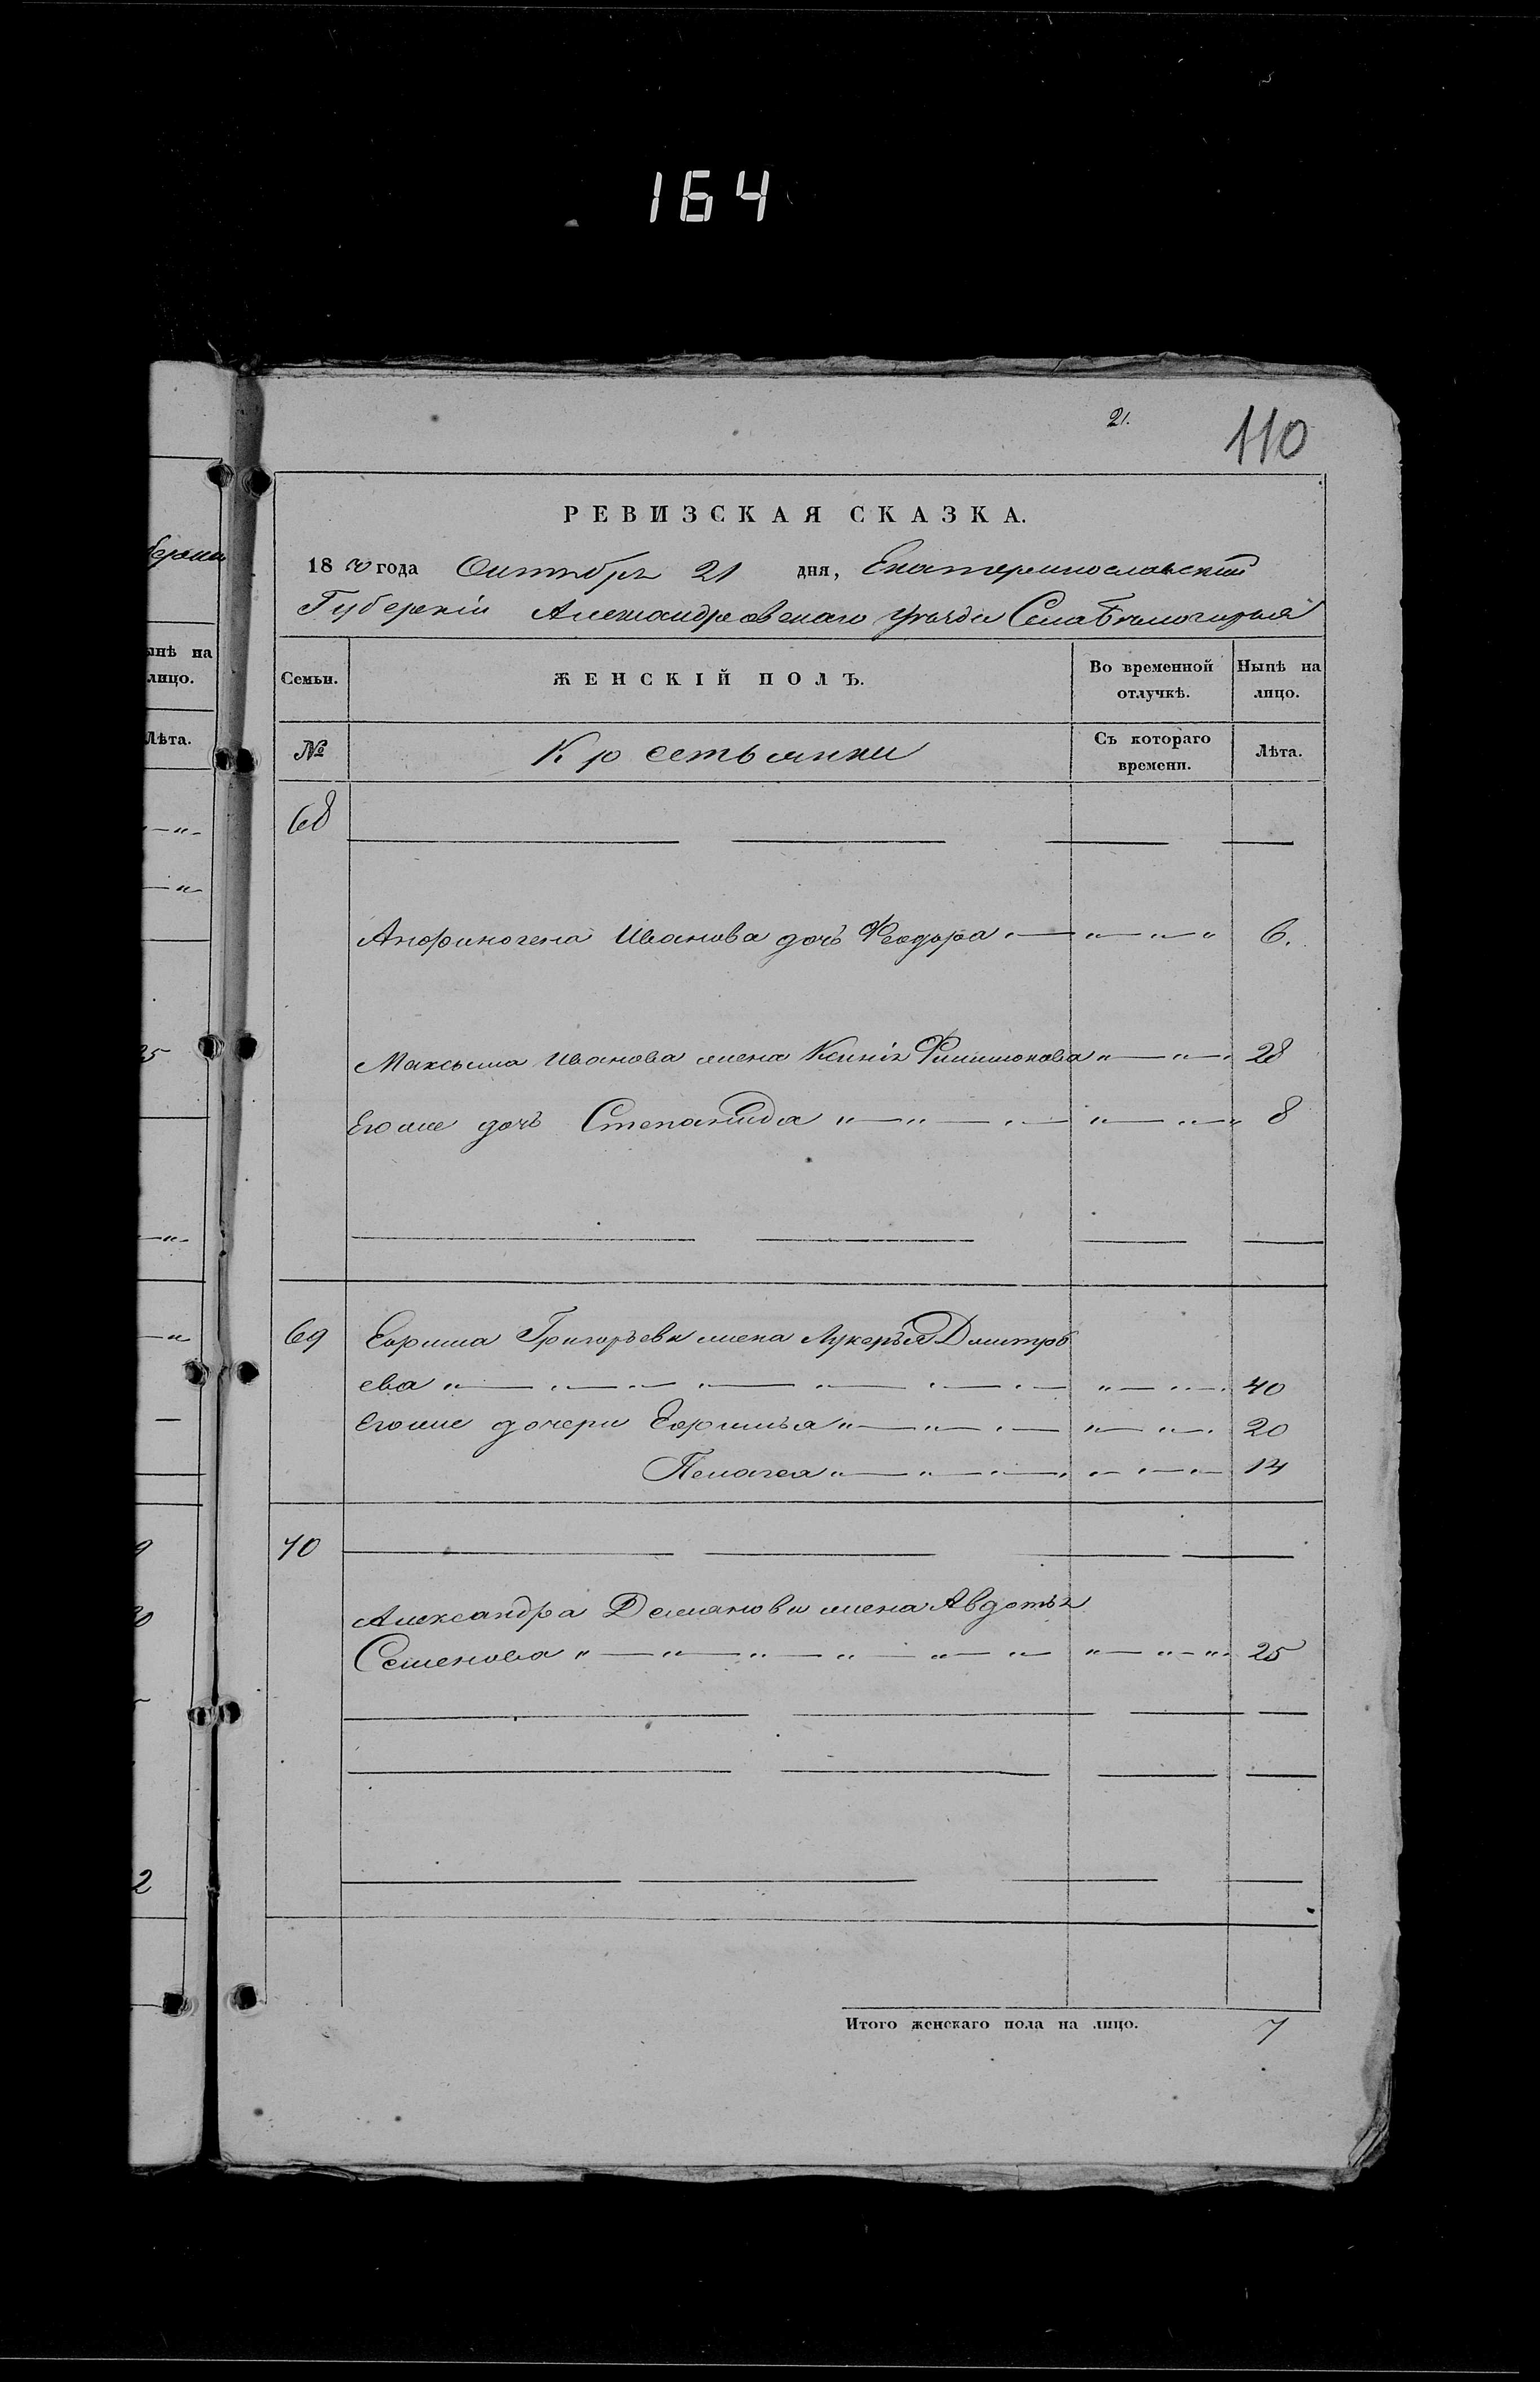 164
21.
110
РЕВИЗСКАЯ СКАЗКА.
1850 года Октября 21 дня, Екатеринославской
Губерніи Александровскаго уѣзда Села Бѣлогорья
Семьи.
ЖЕНСКІЙ ПОЛЪ.
Во временной отлучкѣ.
Нынѣ на лицо.
№
Крестьянки
Съ котораго времени.
Лѣта.
68
Анфиногена Иванова дочь Феодора 6.
Максыма Иванова жена Ксенія Филимонова 28
Его же дочь Степанида 8
69 Ефима Григорьева жена Лукерья Дмитрі
ева 40
Его же дочери Ефимья 20
Пелагея 14
70
Александра Демянова жена Авдотья
Семенова 25
Итого женскаго пола на лицо. 7
ынѣ на
лицо.
Лѣта.